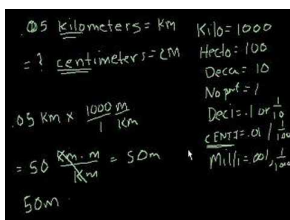 .05 kilometers = KM
= ? centimeters = CM
.05 KM × 1000/1 m/KM
= 50 Km·m/Km = 50m
50m
Kilo = 1000
Hecto = 100
Deca = 10
No pref = 1
Deci = .1 or 1/10
CENTI = .01 / 1/100
Milli = .001, 1/1000